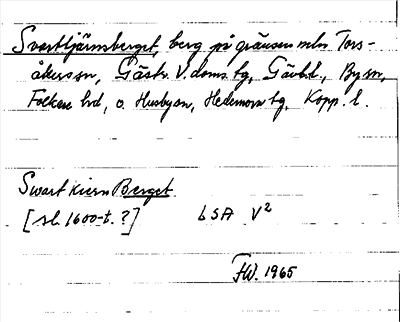 Svarttjärnsberget, berg på gränsen mln Tors-
åkers sn, Gästr. V. doms. tg, Gävl. l., By sn,
Folkare hd, o. Husby sn, Hedemora tg, Kopp. l.
Swart Kiern Berget
[sl. 1600-t. ?] LSA V²
FW. 1965